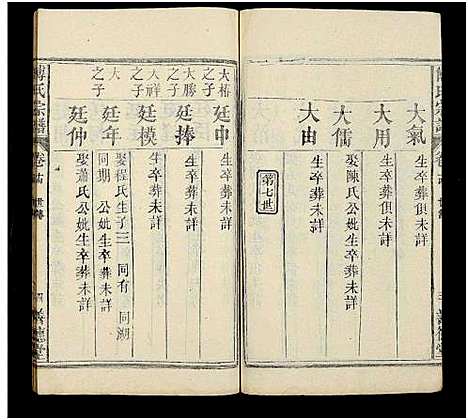 大氣 生卒葬俱未詳
大用 生卒葬俱未詳
大儒 娶陳氏公妣生卒葬未詳
大由 生卒葬未詳
第七世
大椿之子 廷中 生卒葬未詳
大勝之子 廷捧 生卒葬未詳
大祥之子 廷模 生卒葬未詳
大 之子 廷年 娶程氏生子三 同有 同湖 同期 公妣生卒葬未詳
廷仲 娶蕭氏公妣生卒葬未詳
氏宗譜 卷 世傳 四 德堂